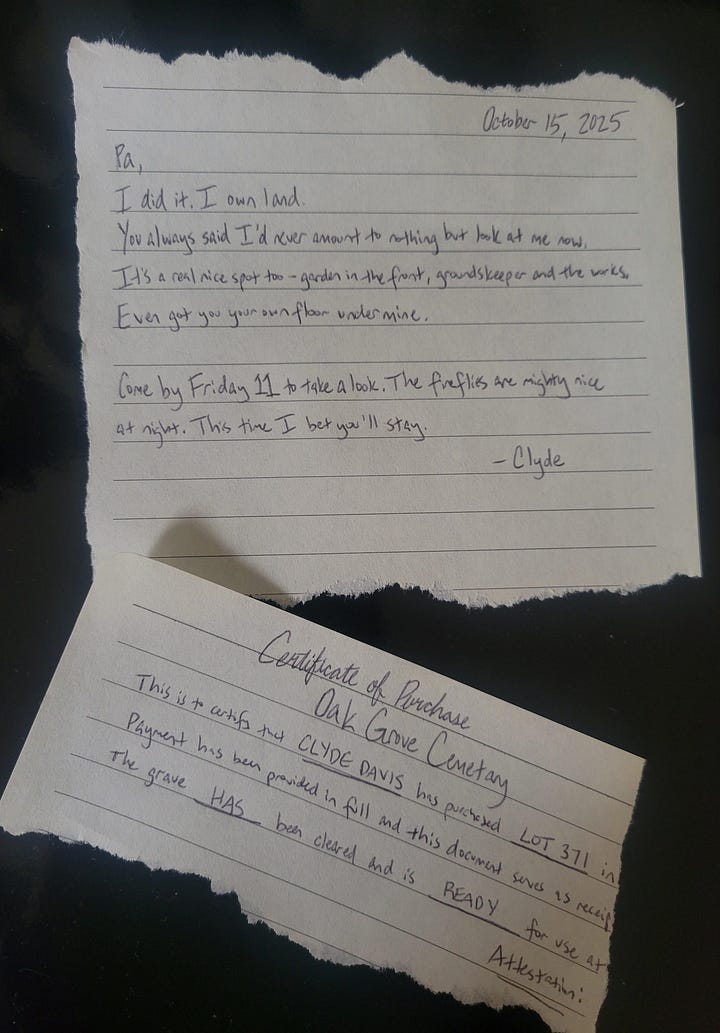 October 15, 2025
Pa,
I did it. I own land.
You always said I'd never amount to nothing but look at me now.
It's a real nice spot too - garden in the front, groundskeeper and the works.
Even got you your own floor under mine.
Come by Friday 11 to take a look. The fireflies are mighty nice
at night. This time I bet you'll stay.
- Clyde
Certificate of Purchase
Oak Grove Cemetary
This is to certify that CLYDE DAVIS has purchased LOT 371 in
Payment has been provided in full and this document serves as receip
The grave HAS been cleared and is READY for use at
Attestation: